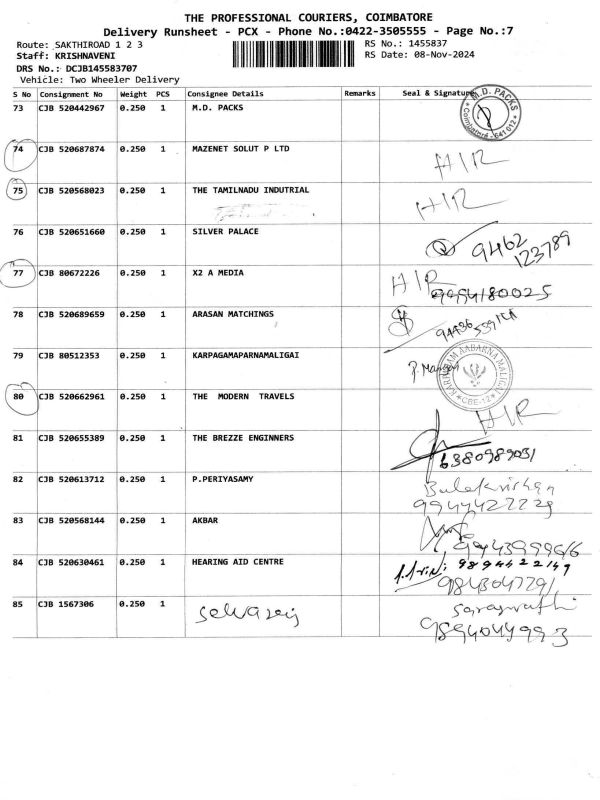 THE PROFESSIONAL COURIERS, COIMBATORE
Delivery Runsheet - PCX - Phone No.:0422-3505555 - Page No.:7
Route: SAKTHIROAD 1 2 3 RS No.: 1455837
Staff: KRISHNAVENI RS Date: 08-Nov-2024
DRS No.: DCJB145583707
Vehicle: Two Wheeler Delivery
S No Consignment No Weight PCS Consignee Details Remarks Seal & Signature
73 CJB 520442967 0.250 1 M.D. PACKS M.D. PACKS Coimbatore - 641 012
74 CJB 520687874 0.250 1 MAZENET SOLUT P LTD HIR
75 CJB 520568023 0.250 1 THE TAMILNADU INDUTRIAL HIR
76 CJB 520651660 0.250 1 SILVER PALACE 9462
123789
77 CJB 80672226 0.250 1 X2 A MEDIA HIR
9994180025
78 CJB 520689659 0.250 1 ARASAN MATCHINGS
79 CJB 80512353 0.250 1 KARPAGAMAPARNAMALIGAI KARPAGAM AABARNA MALIGAI CBE-12
80 CJB 520662961 0.250 1 THE MODERN TRAVELS HIR
81 CJB 520655389 0.250 1 THE BREZZE ENGINNERS 6380989031
82 CJB 520613712 0.250 1 P.PERIYASAMY Balakrishan
9944427229
83 CJB 520568144 0.250 1 AKBAR
84 CJB 520630461 0.250 1 HEARING AID CENTRE 9894422149
9843047291
85 CJB 1567306 0.250 1 Selvaraj Saraswathi
9894044993